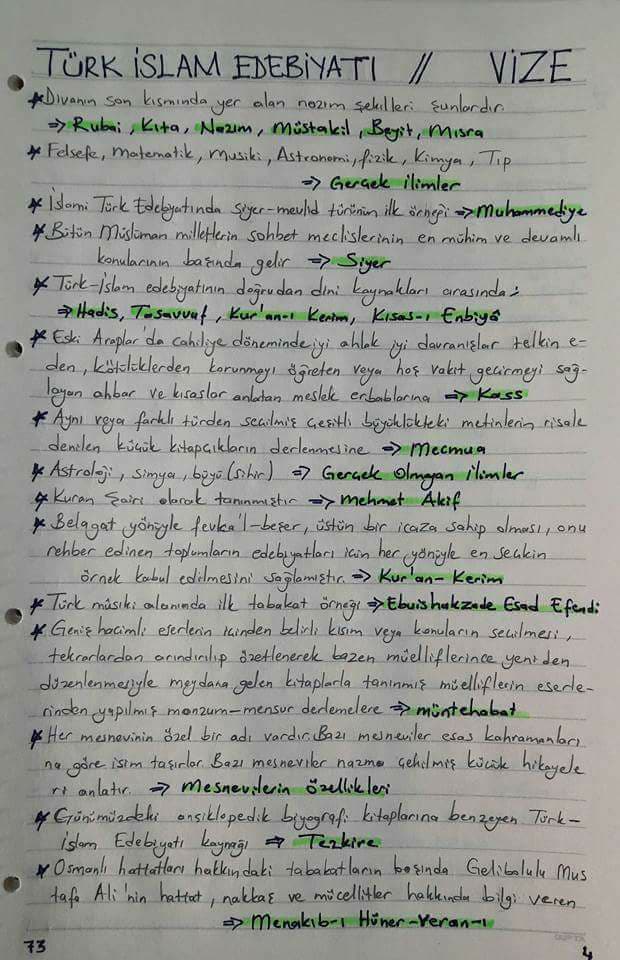 TÜRK İSLAM EDEBİYATI // VİZE
* Divanın son kısmında yer alan nazım şekilleri şunlardır.
⇒ Rubai, Kıta, Nazım, Müstakil, Beyit, Mısra
* Felsefe, Matematik, Musiki, Astronomi, fizik, Kimya, Tıp
⇒ Gerçek ilimler
* İslami Türk Edebiyatında Siyer-mevlid türünün ilk örneği ⇒ Muhammediye
* Bütün Müslüman milletlerin sohbet meclislerinin en mühim ve devamlı
konularının başında gelir ⇒ Siyer
* Türk-İslam edebiyatının doğrudan dini kaynakları arasında;
⇒ Hadis, Tasavvuf, Kur'an-ı Kerim, Kısas-ı Enbiyâ
* Eski Araplar'da cahiliye döneminde iyi ahlak iyi davranışlar telkin e-
den, kötülüklerden korunmayı öğreten veya hoş vakit geçirmeyi sağ-
layan ahbar ve kıssalar anlatan meslek erbablarına ⇒ Kass
* Aynı veya farklı türden seçilmiş çeşitli büyüklükteki metinlerin risale
denilen küçük kitapçıkların derlenmesine ⇒ Mecmua
* Astroloji, simya, büyü (sihir) ⇒ Gerçek Olmayan ilimler
* Kuran Şairi olarak tanınmıştır ⇒ Mehmet Akif
* Belagat yönüyle fevka'l-beşer, üstün bir icaza sahip olması, onu
rehber edinen toplumların edebiyatları için her yönüyle en seçkin
örnek kabul edilmesini sağlamıştır. ⇒ Kur'an- Kerim
* Türk mûsiki alanında ilk tabakat örneği ⇒ Ebuishakzade Esad Efendi
* Geniş hacimli eserlerin içinden belirli kısım veya konuların seçilmesi,
tekrarlardan arındırılıp özetlenerek bazen müelliflerince yeniden
düzenlenmesiyle meydana gelen kitaplarla tanınmış müelliflerin eserle-
rinden yapılmış manzum-mensur derlemelere ⇒ müntehabat
* Her mesnevinin özel bir adı vardır. Bazı mesneviler esas kahramanları
na göre isim taşırlar. Bazı mesneviler nazma çekilmiş küçük hikayele
ri anlatır. ⇒ Mesnevilerin özellikleri
* Günümüzdeki ansiklopedik biyografi kitaplarına benzeyen Türk-
islam Edebiyatı kaynağı ⇒ Tezkire
* Osmanlı hattatları hakkındaki tabakatların başında Gelibolulu Mus
tafa Ali'nin hattat, nakkaş ve mücellitler hakkında bilgi veren
⇒ Menakıb-ı Hüner-Veran-ı
73
4